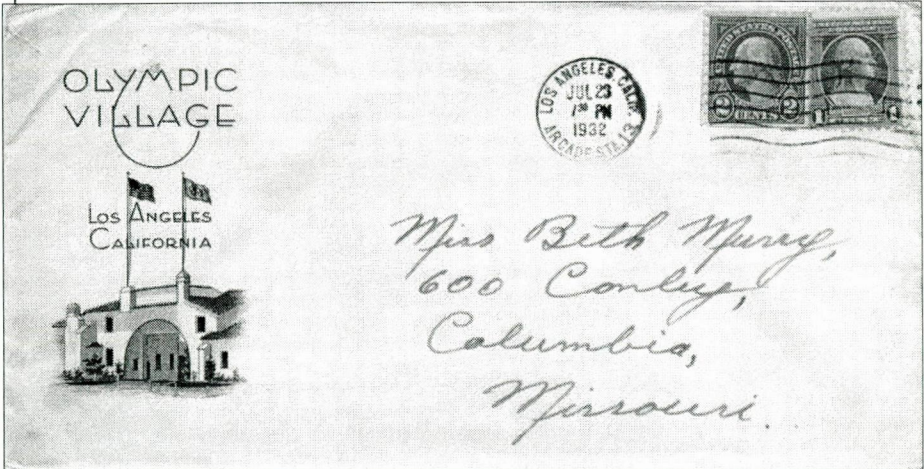 OLYMPIC
VILLAGE
LOS ANGELES
CALIFORNIA
LOS ANGELES, CALIF.
JUL 23
PM
1932
ARCADE STA. 13
2 2
Miss Beth Murry,
600 Conley,
Columbia,
Missouri.